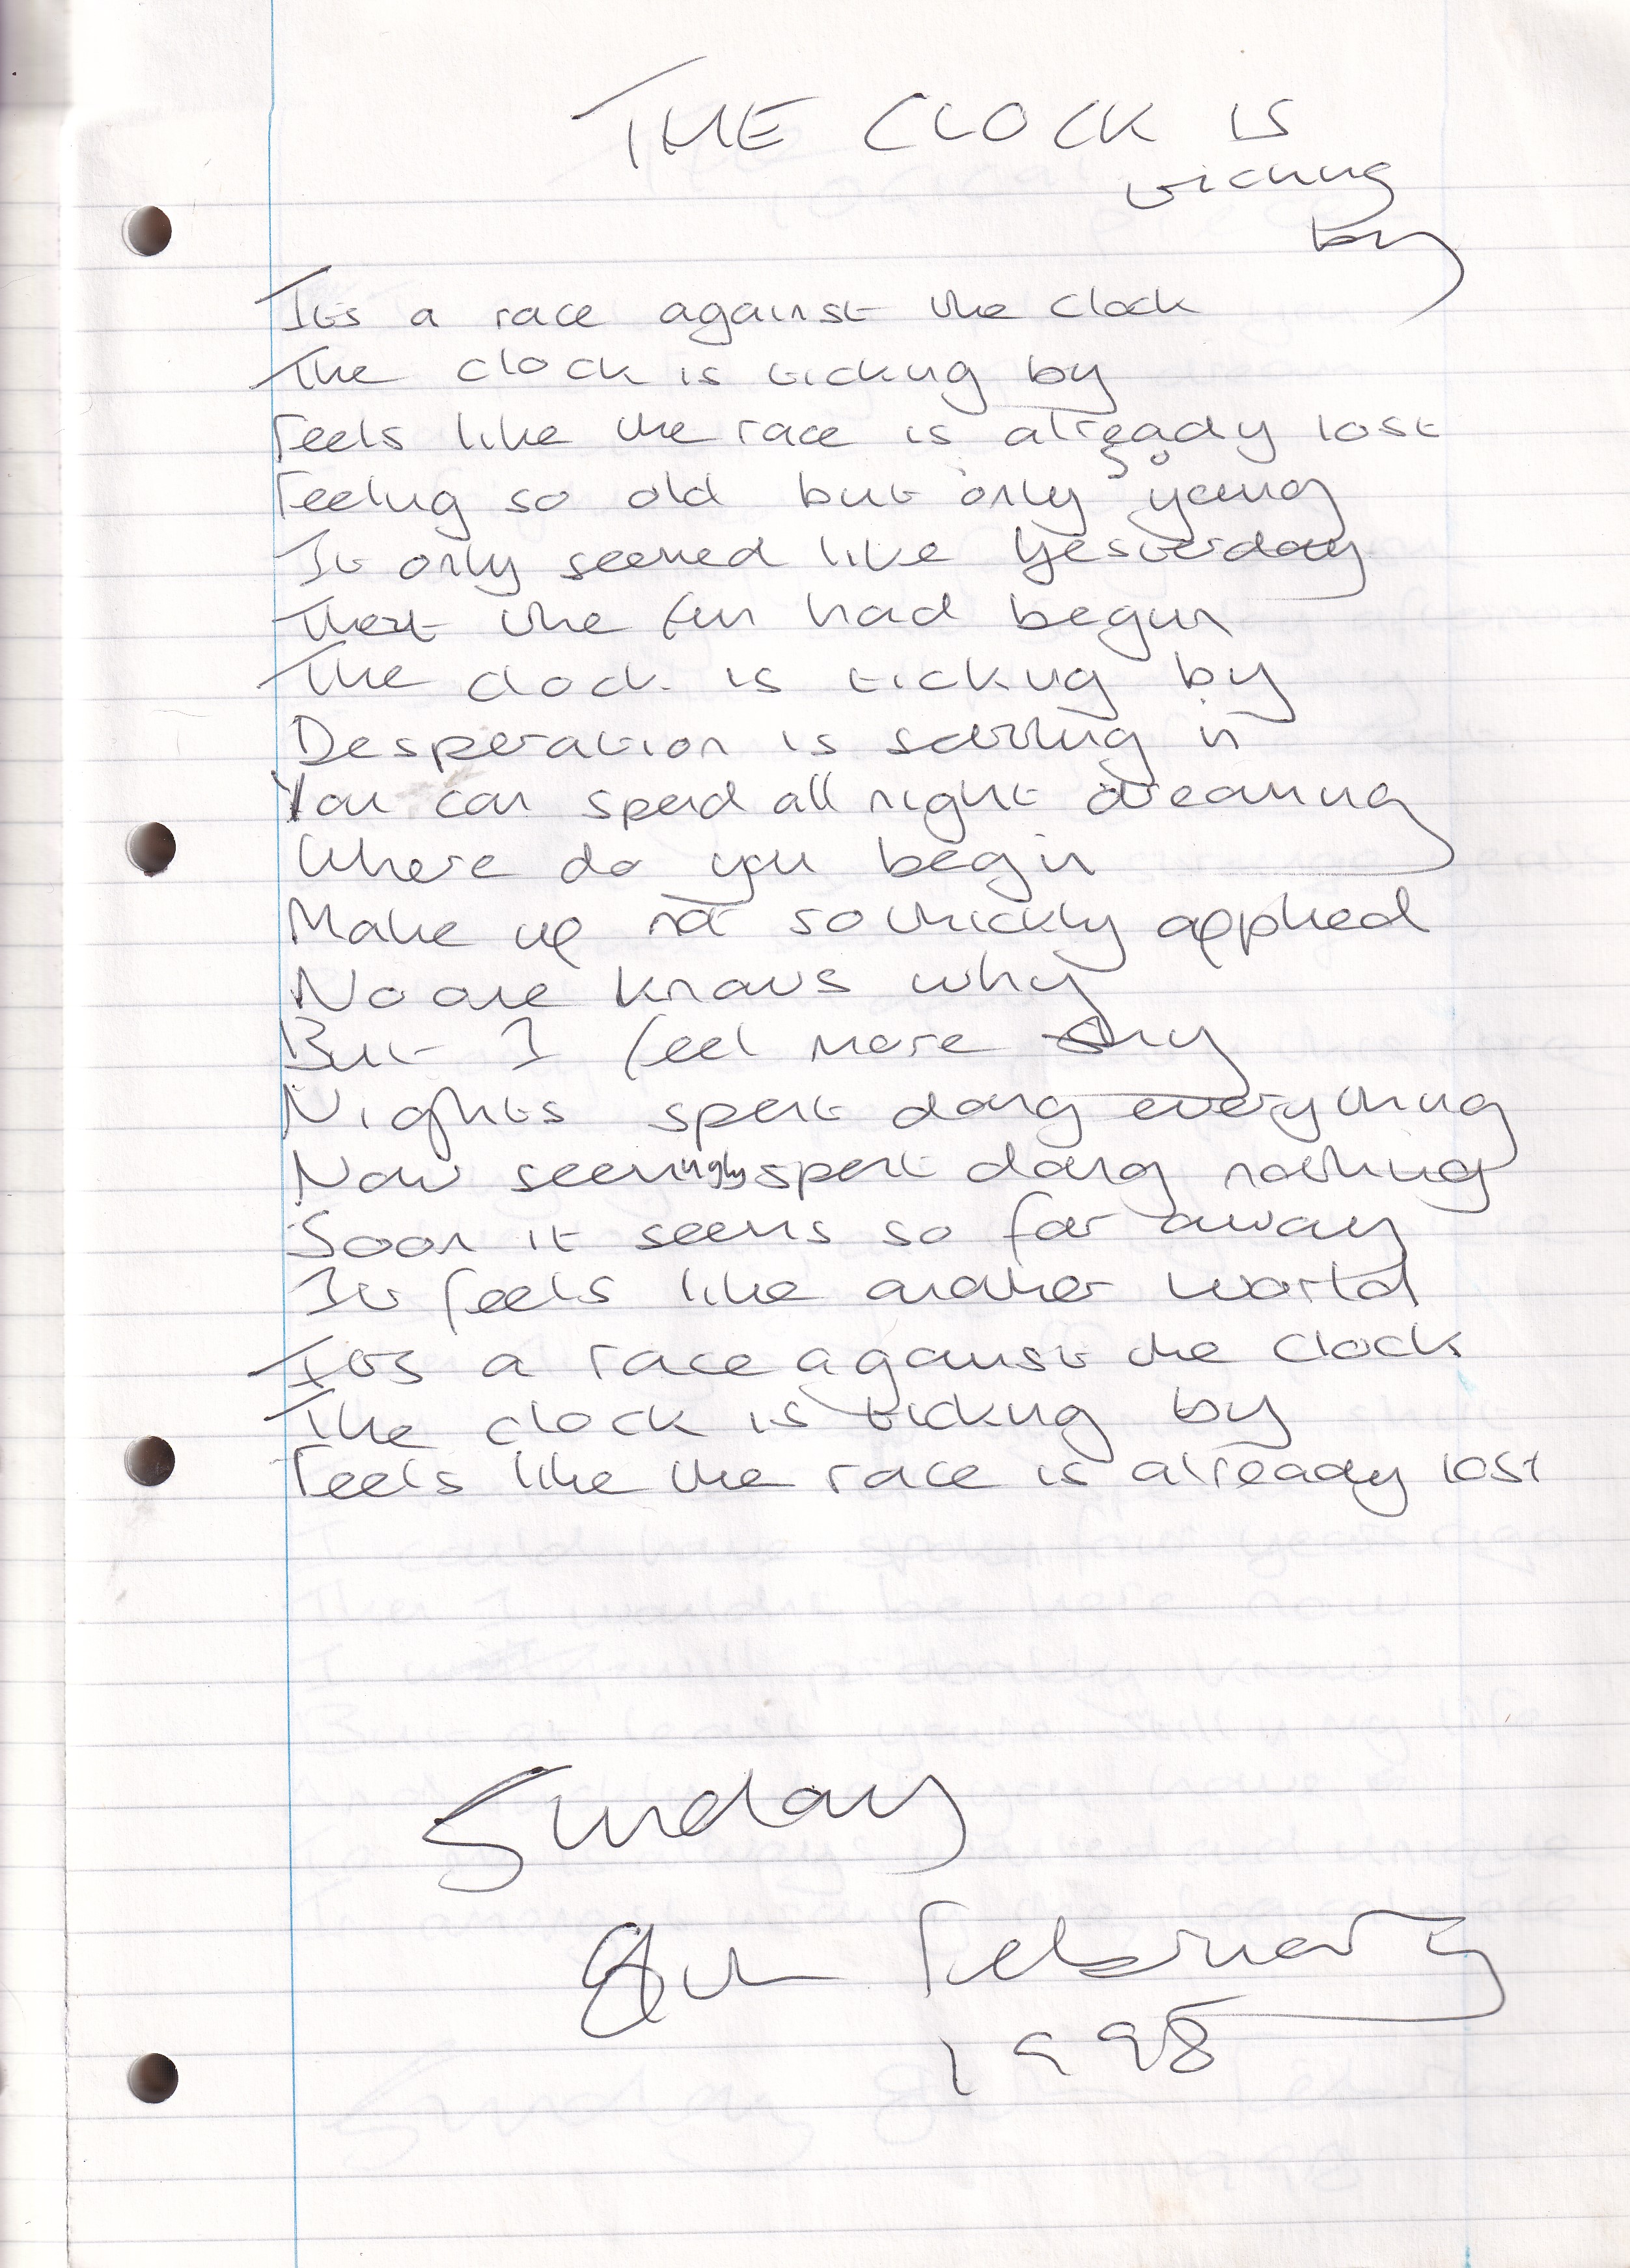 THE CLOCK IS
ticking
by
Its a race against the clock
The clock is ticking by
Feels like the race is already lost
Feeling so old but only so young
It only seemed like yesterday
That the fun had begun
The clock is ticking by
Desperation is setting in
You can spend all night dreaming
Where do you begin
Make up not so thickly applied
No one knows why
But I feel more shy
Nights spent doing everything
Now seemingly spent doing nothing
Soon it seems so far away
It feels like another world
Its a race against the clock
The clock is ticking by
Feels like the race is already lost
Sunday
8th February
1998